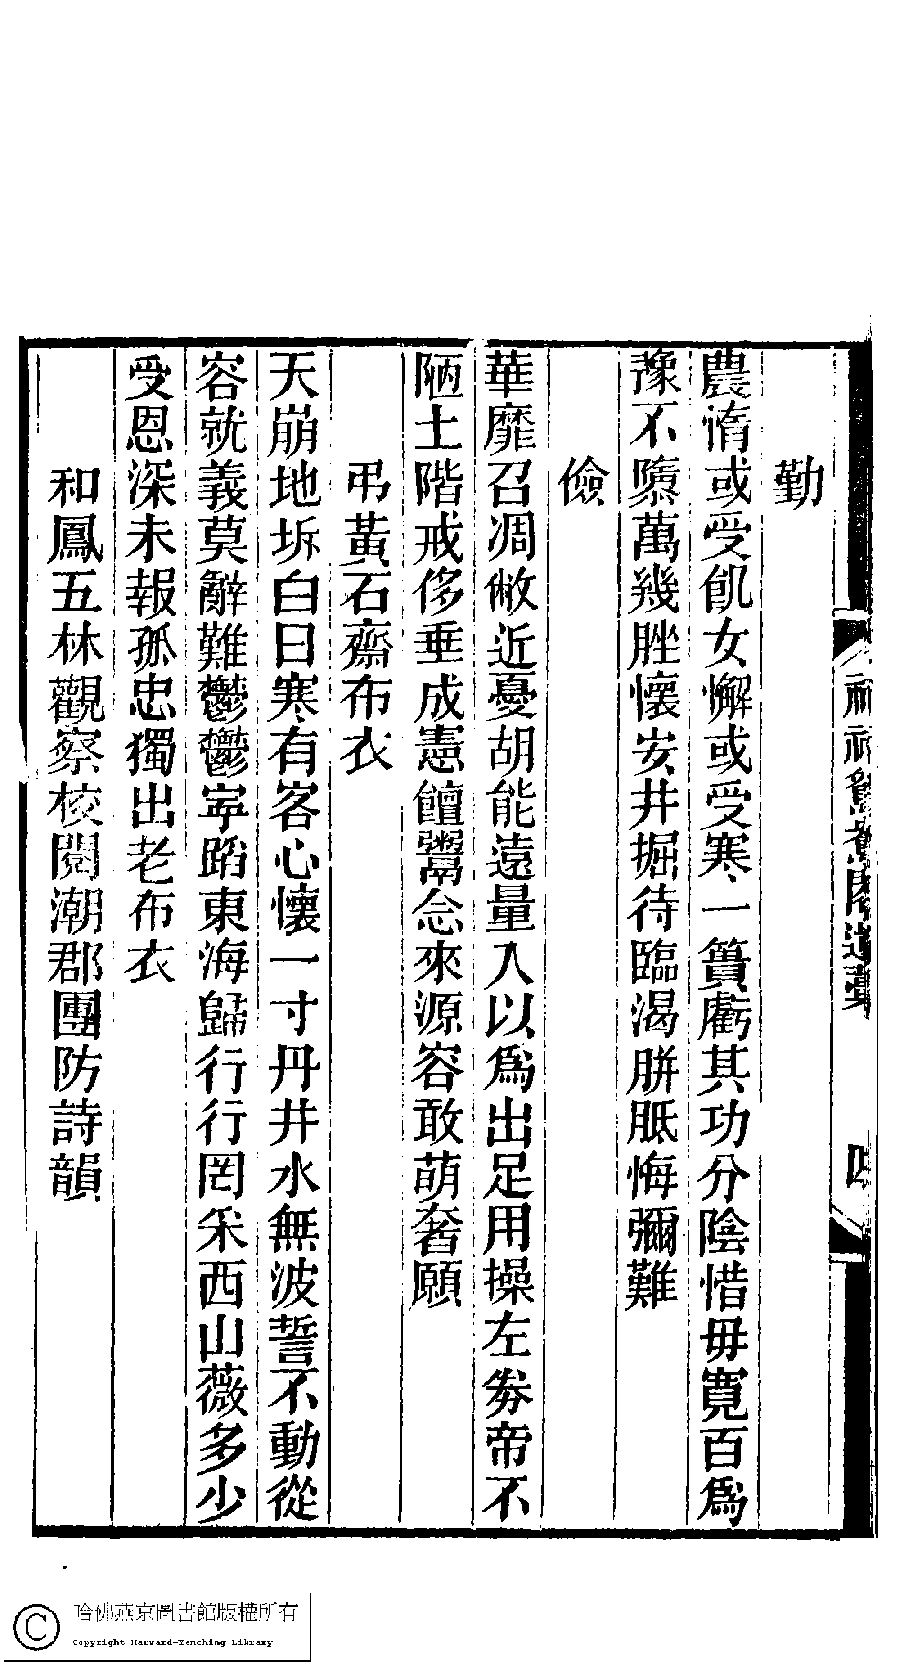 勤
農惰或受飢女懈或受寒一簣虧其功分陰惜毋寬百為
豫不隳萬幾脞懷安井掘待臨渴胼胝悔彌難
儉
華靡召凋敝近憂胡能遠量入以為出足用操左劵帝不
陋土階戒侈垂成憲饘鬻念來源容敢萌奢願
弔黃石齋布衣
天崩地坼白日寒有客心懷一寸丹井水無波誓不動從
容就義莫辭難鬱鬱寧蹈東海歸行行罔采西山薇多少
受恩深未報孤忠獨出老布衣
和鳳五林觀察校閱潮郡團防詩韻
四
哈佛燕京圖書館版權所有
Copyright Harvard-Yenching Library